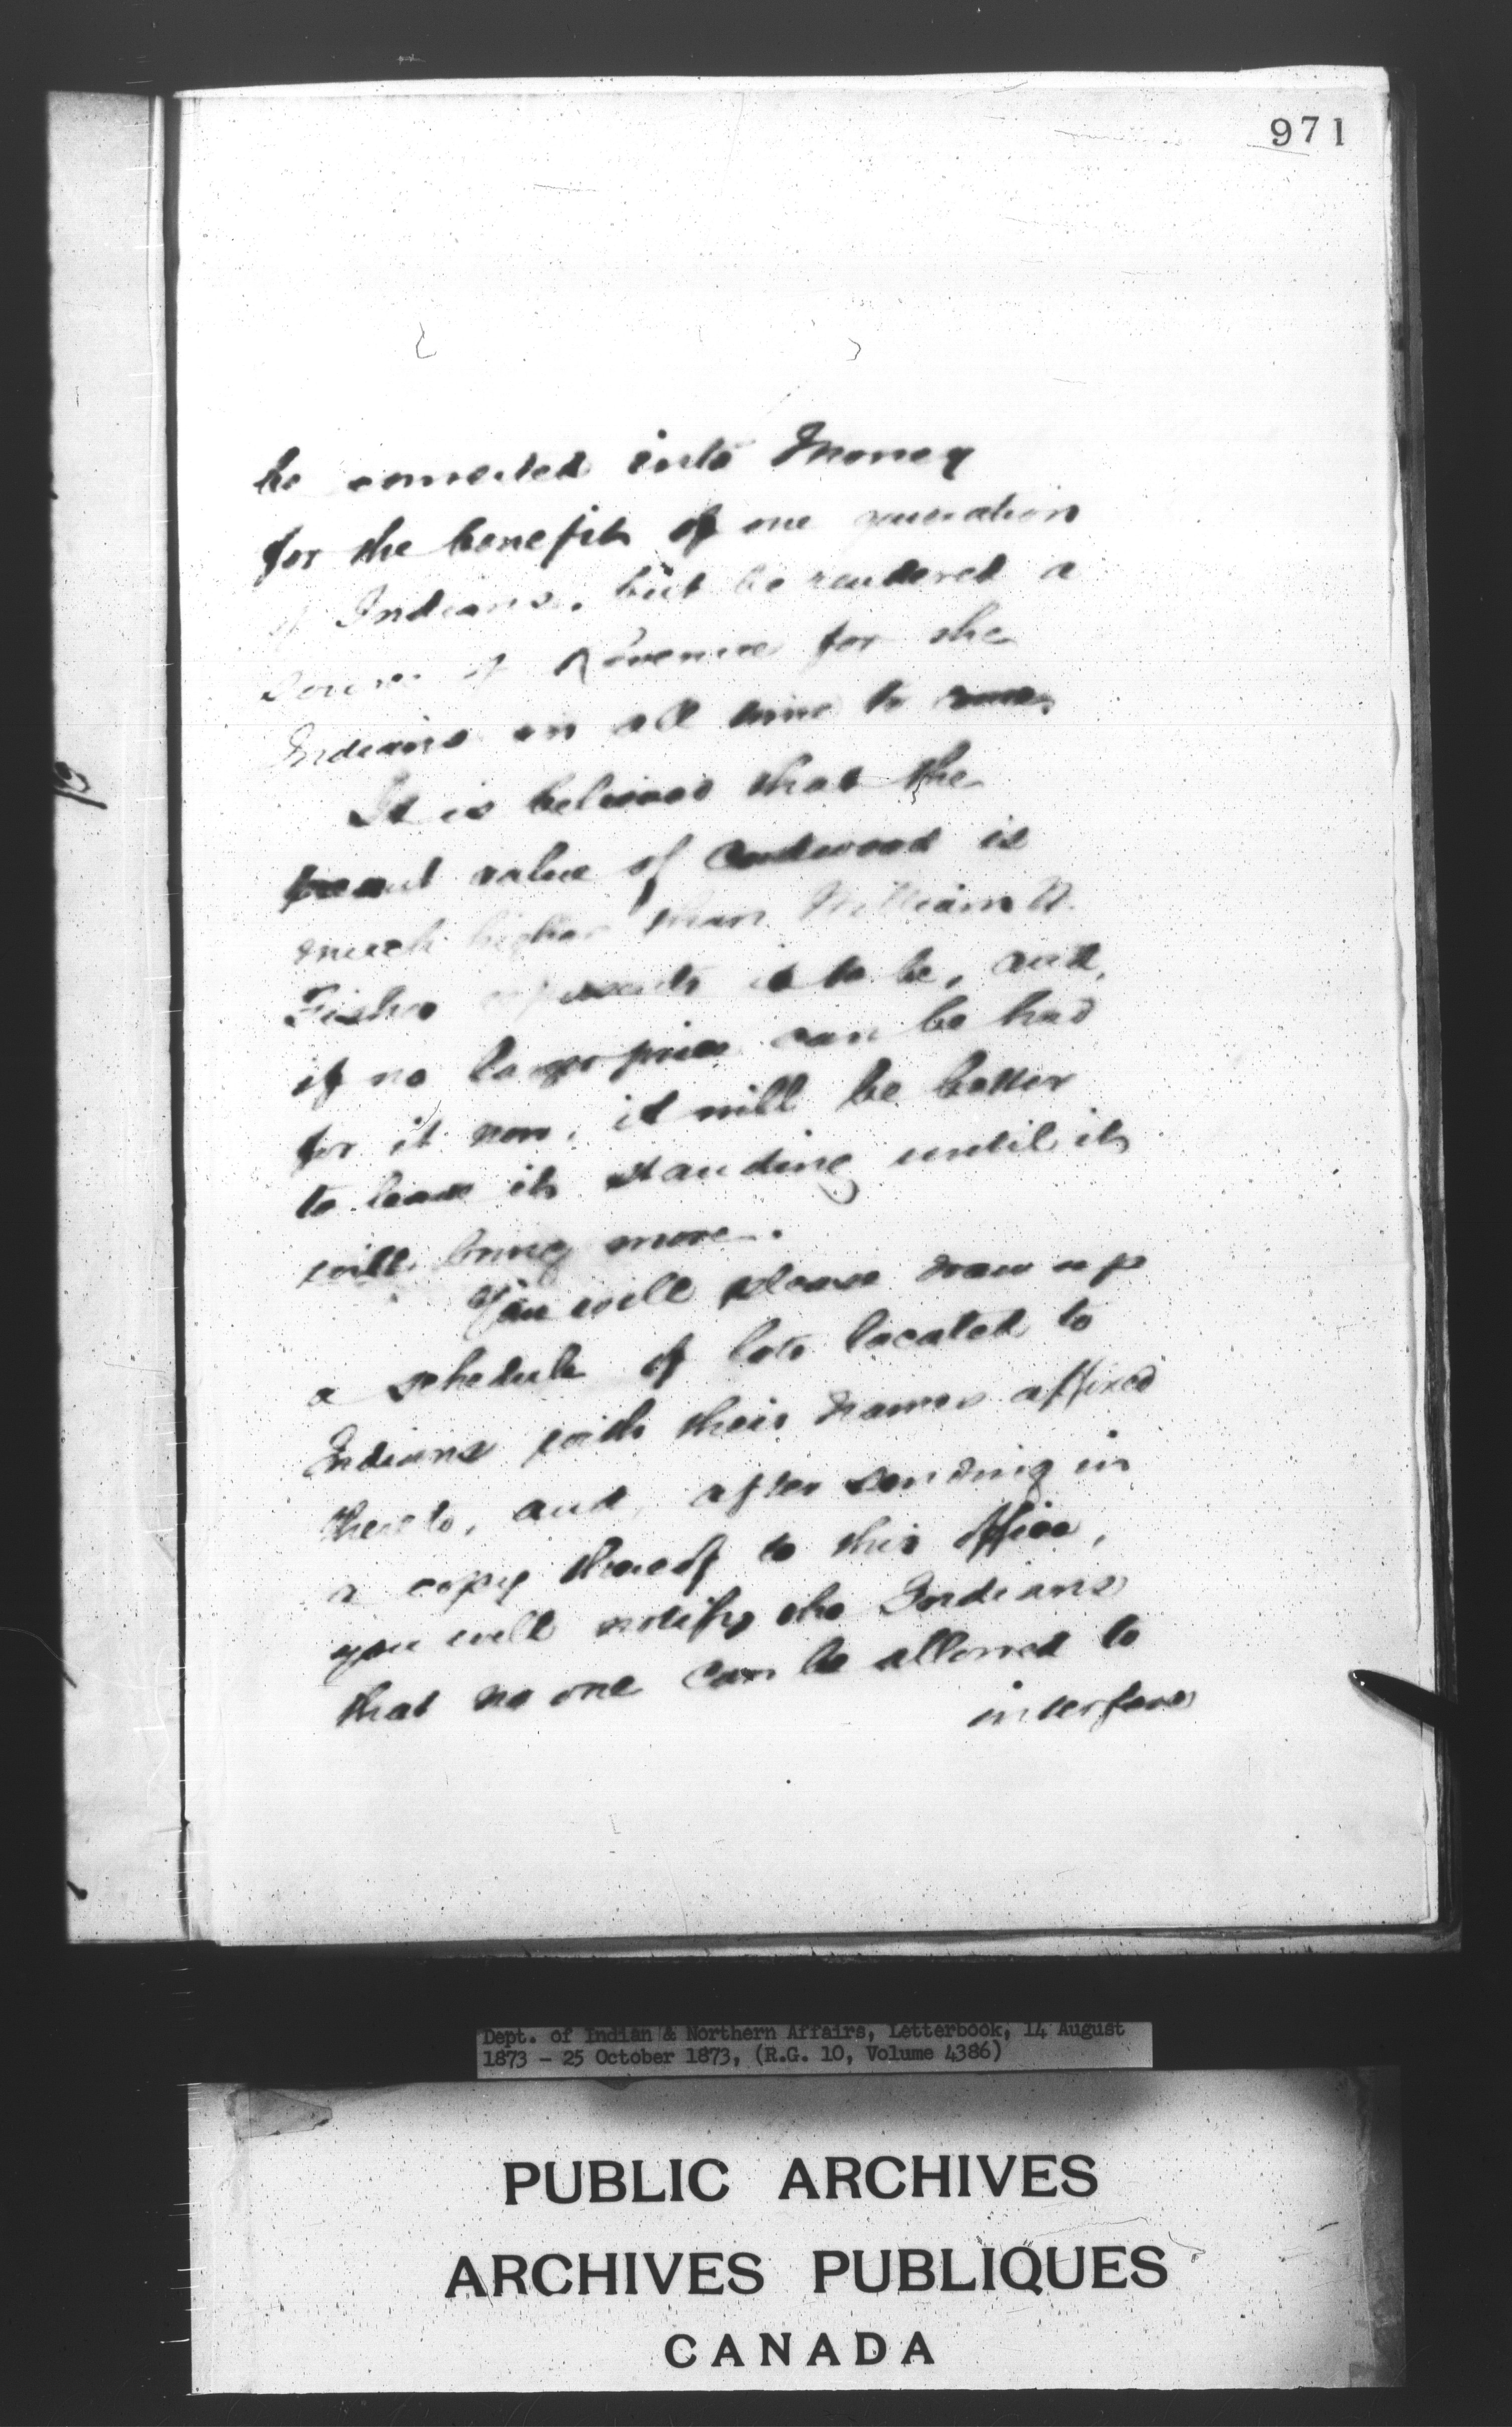 971
be converted into Money
for the benefit of one generation
of Indians, but be rendered a
source of Revenue for the
Indians in all time to come.
It is believed that the
present value of Cordwood is
much higher than William N.
Fisher represents it to be, and,
if no larger price can be had
for it now, it will be better
to leave it standing until it
will bring more.
You will please draw up
a schedule of lots located to
Indians with their names affixed
thereto, and, after sending in
a copy thereof to this Office,
you will notify the Indians
that no one can be allowed to
interfere
Dept. of Indian & Northern Affairs, Letterbook, 14 August
1873 - 25 October 1873, (R.G. 10, Volume 4386)
PUBLIC ARCHIVES
ARCHIVES PUBLIQUES
CANADA